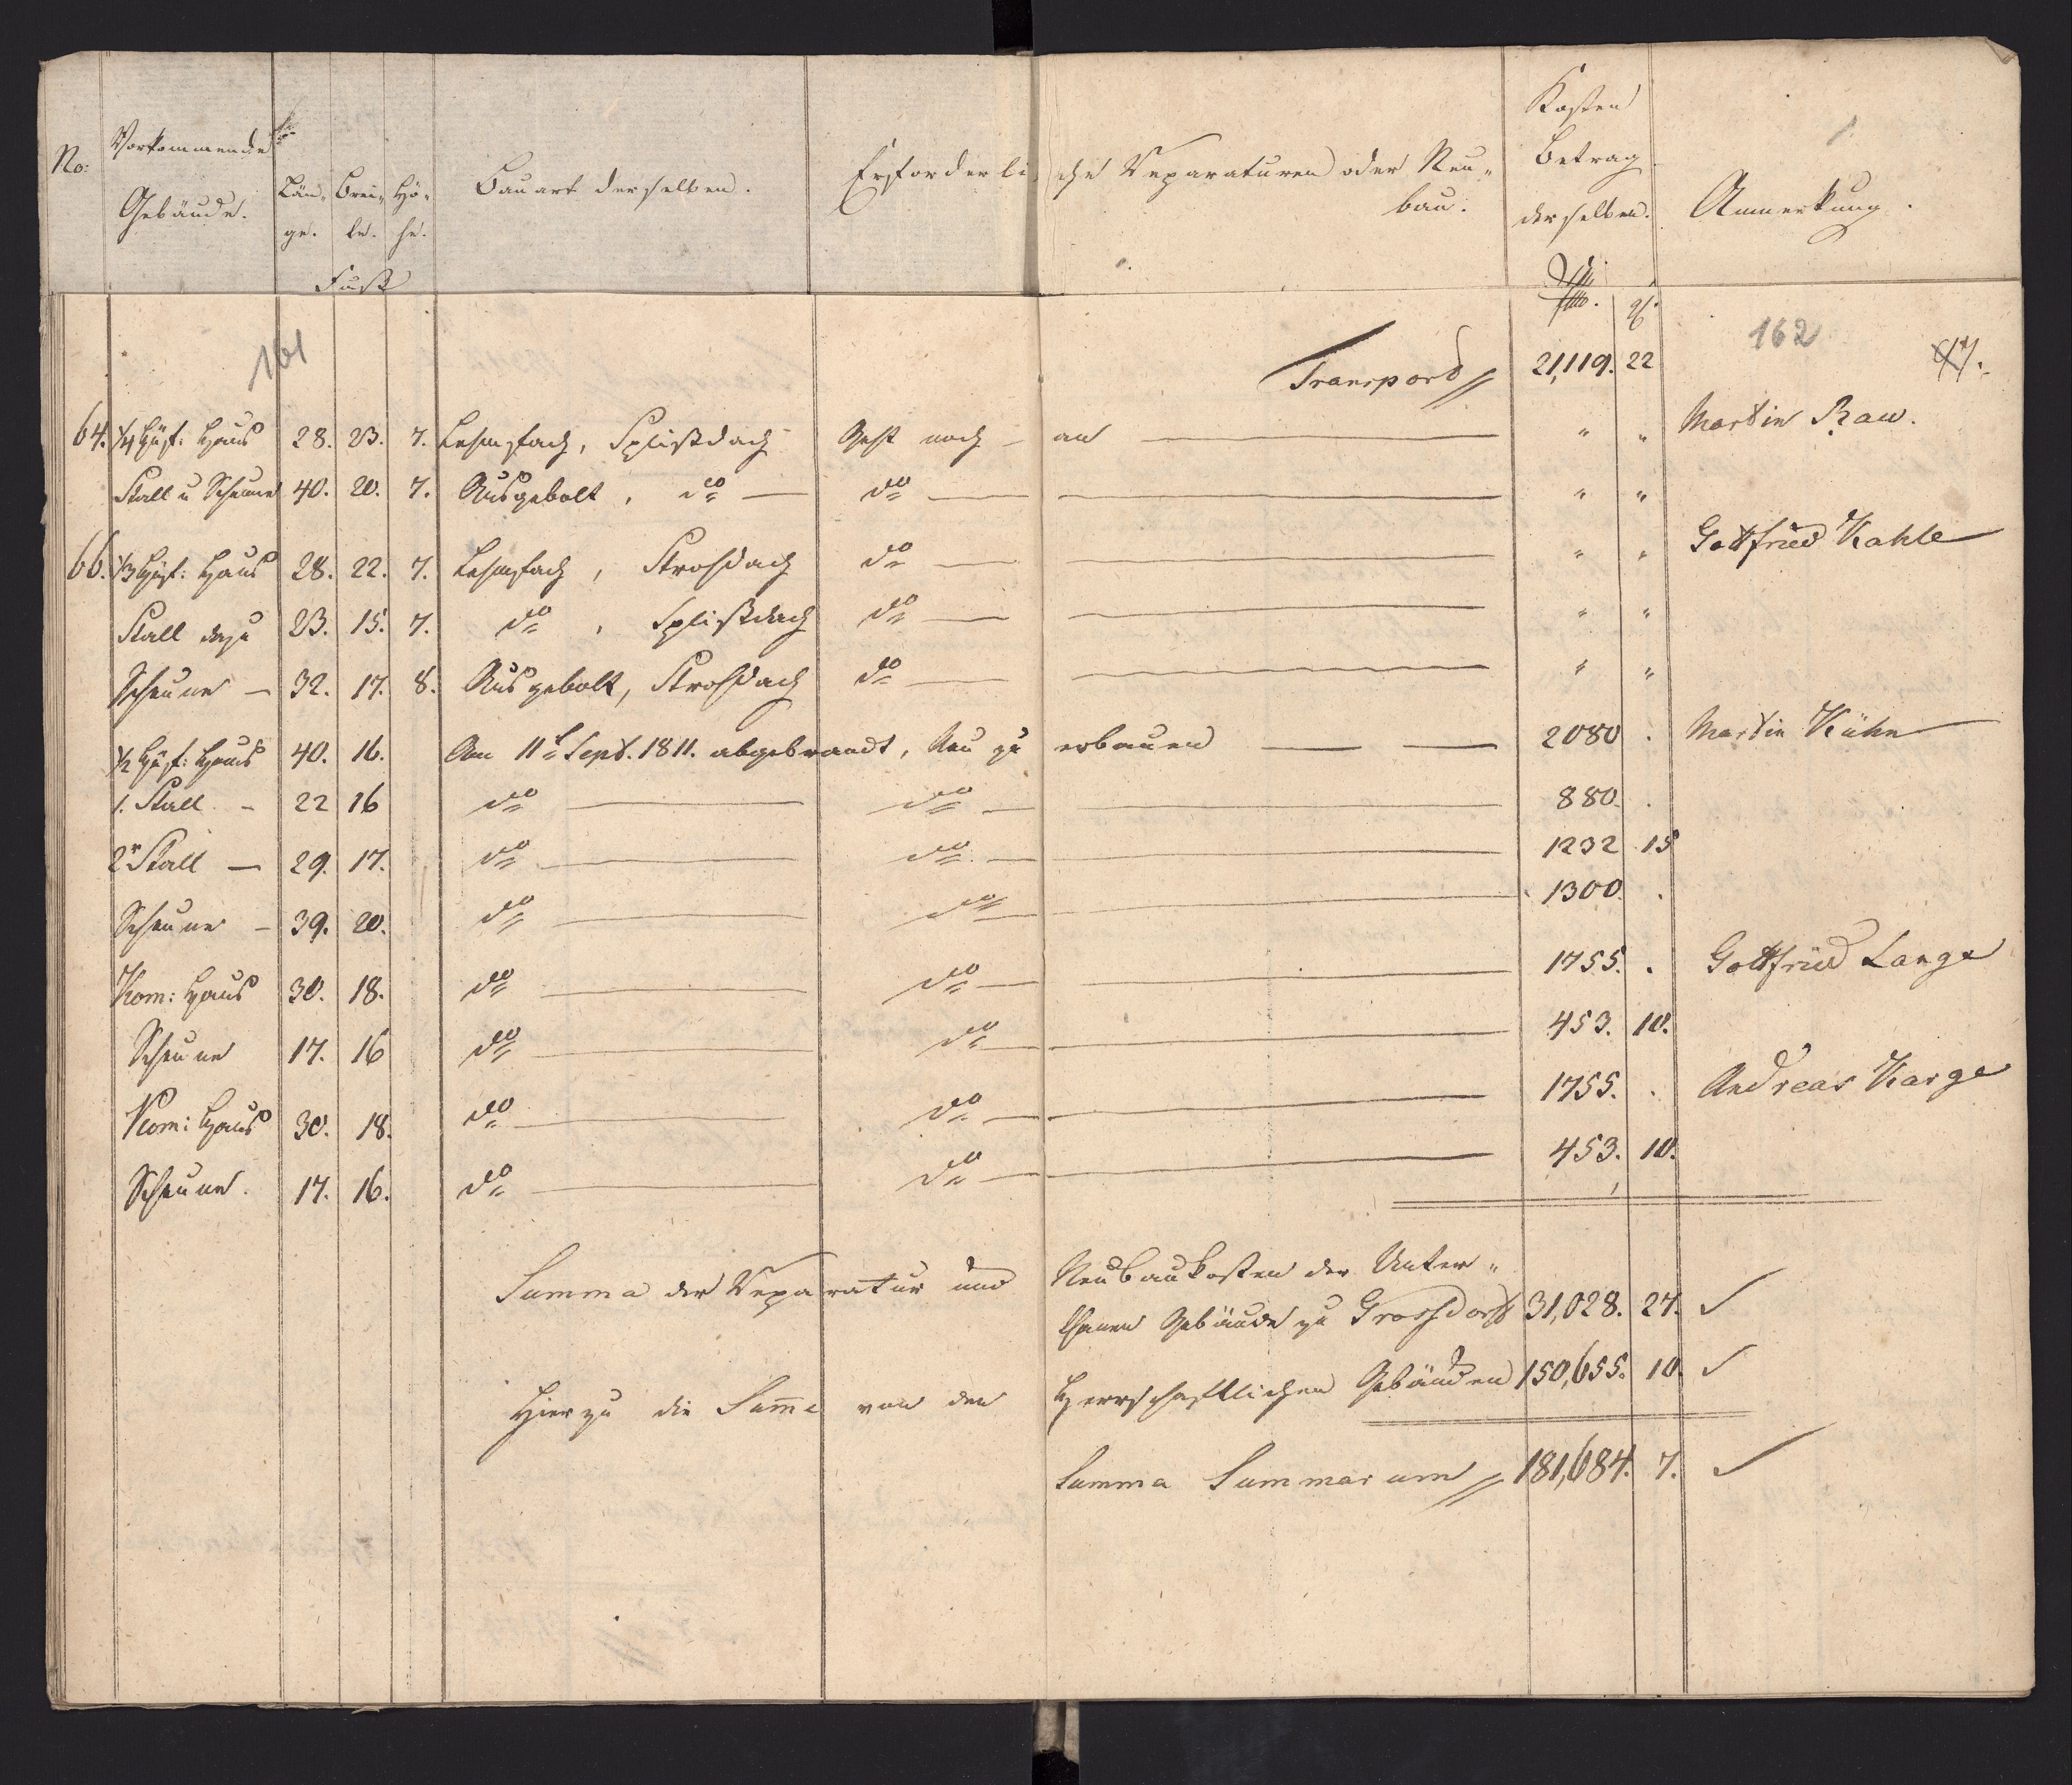 No: Vorkommende Gebäude. Län- Brei- Hö- Bauart derselben. Erforderliche Reparaturen oder Neu- Kosten Betrag derselben. Anmerkung.
ge. te. he. bau.
Fuß rthl. gl.
161 162
Transport 21,119. 22
64. 1/4 Hüf: Haus 28. 23. 7. Lehmfach, Splißdach Geht noch - an — " " Martin Rau.
Stall u Scheune 40. 20. 7. Ausgebolt, do — do — " "
66. 1/3 Hüf: Haus 28. 22. 7. Lehmfach, Strohdach do — " " Gottfried Kahle
Stall dazu 23. 15. 7. do , Splißdach do — " "
Scheune — 32. 17. 8. Ausgebolt, Strohdach do — " "
1/2 Hüf: Haus 40. 16. Am 11t Sept. 1811. abgebrandt, Neu zu erbauen — 2080 . Martin Kühn
1. Stall - 22 16 do — do — 880. .
2r Stall — 29. 17. do — do — 1232 15
Scheune - 39. 20. do — do — 1300. .
Kom: Haus 30. 18. do — do — 1755. . Gottfried Lange
Scheune 17. 16 do — do — 453. 10.
Kom: Haus 30. 18. do — do — 1755. . Andreas Karge
Scheune. 17. 16. do — do — 453. 10.
Summa der Reparatur und Neubaukosten der Unter-
thanen Gebäude zu Grossdorff 31,028. 27.
Hierzu die Summa von den Herrschafftlichen Gebäuden 150,655. 10.
Summa Summarum 181,684. 7.